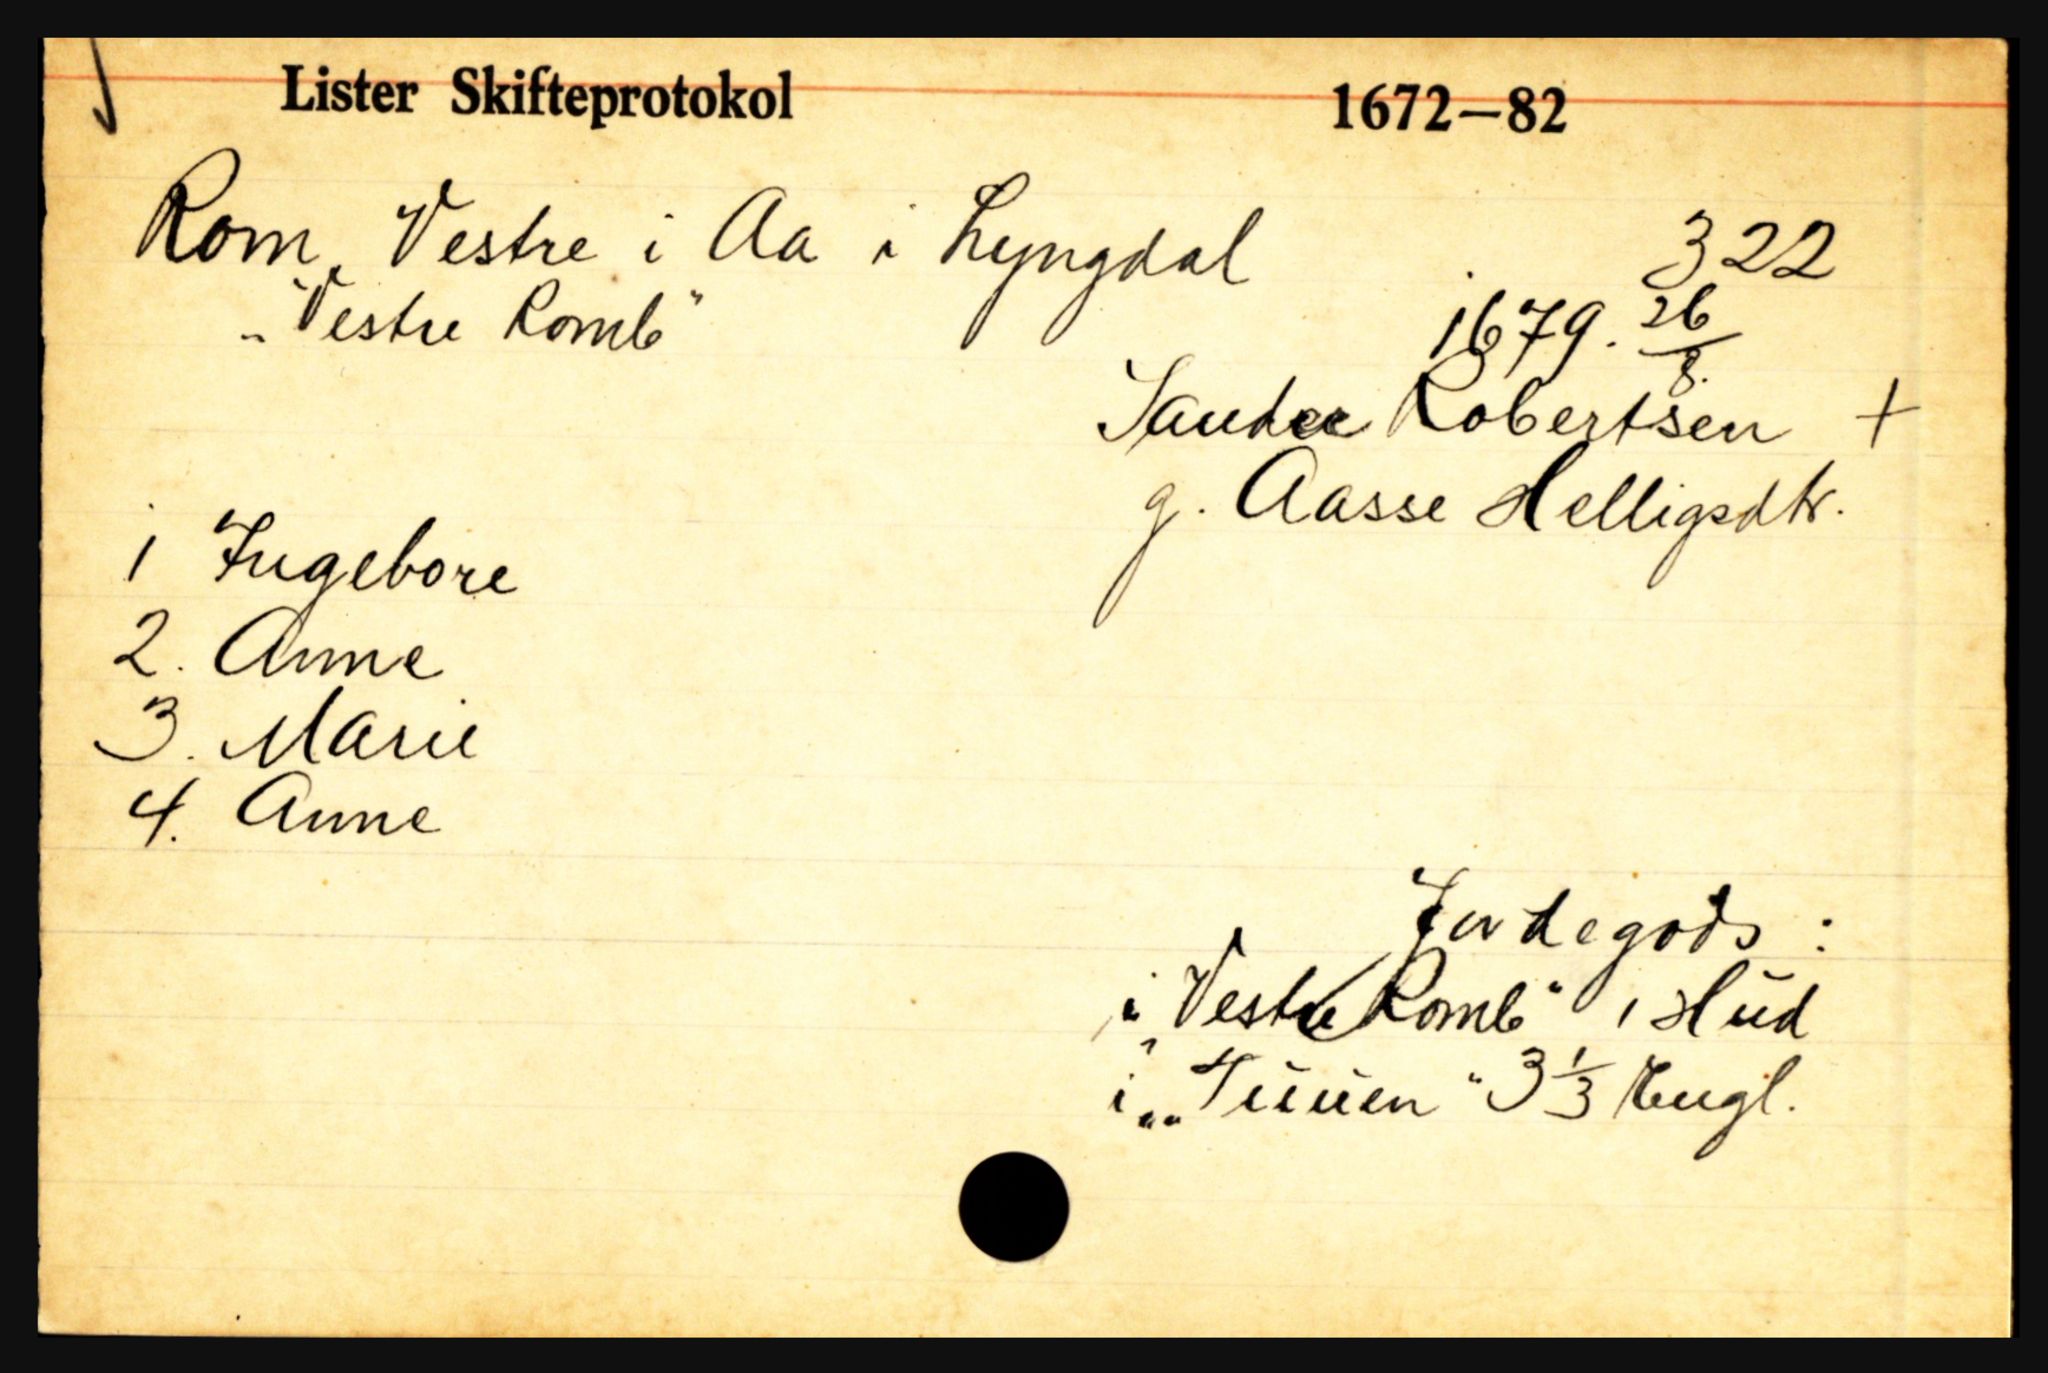 Lister Skifteprotokol 1672–82
Rom, Vestre i Aa i Lyngdal 322
"Vestre Romb"
1679. 26/8.
Sander Robertsen +
g. Aasse Helligsdtr.
1 Ingebore
2. Anne
3. Marie
4. Anne
Jordegods:
i "Vestre Romb" 1 Hud
i "Tuuen" 3 1/3 Engl.